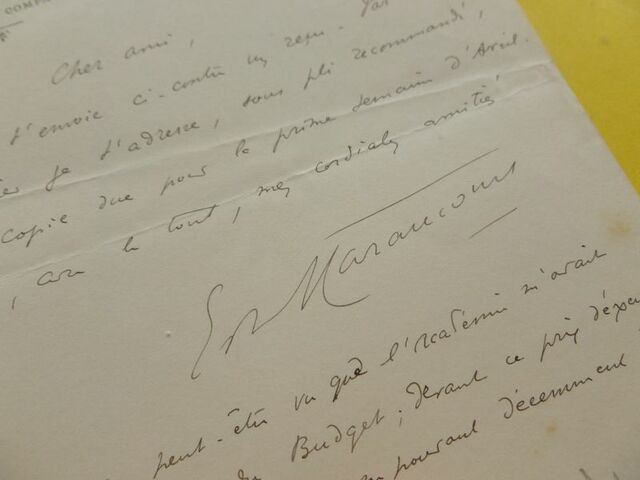 COMP
Cher ami,
J'envoie ci-contre un reçu. Par
je t'adresse, sous pli recommandé,
copie due pour la prime semaine d'Avril.
, avec le tout, mes cordiales amitiés
Maraucourt
peut-être vu que l'Académie m'avait
Budget; devant ce prix
pouvant décemment